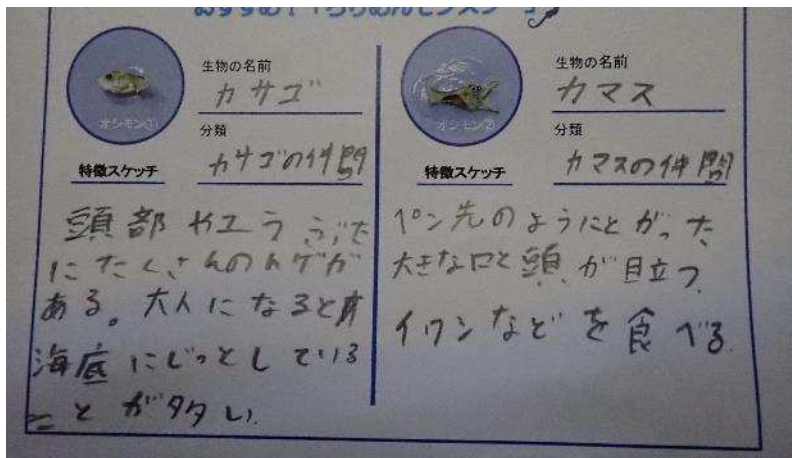 おすすめ!「ちりめんモンスター」
生物の名前
カサゴ
オシモン①
分類
カサゴの仲間
特徴スケッチ
頭部やエラぶた
にたくさんのトゲが
ある。大人になると
海底にじっとしている
ことが多い
生物の名前
カマス
オシモン②
分類
カマスの仲間
特徴スケッチ
ペン先のようにとがった
大きな口と頭が目立つ
イワシなどを食べる